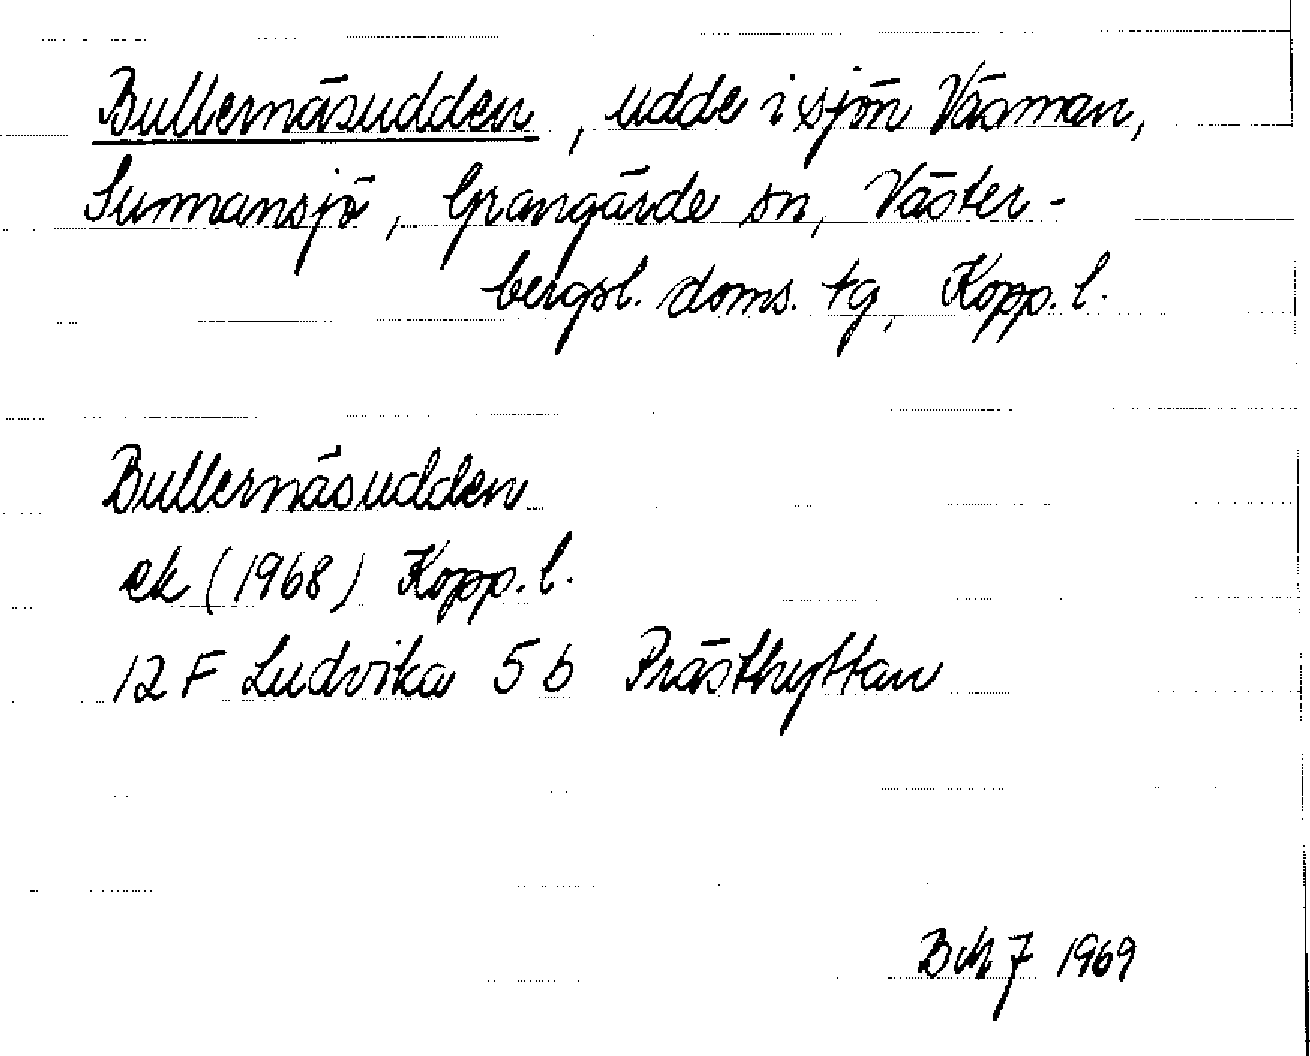 Bullernäsudden, udde i sjön Väsman,
Sunnansjö, Grangärde sn, Väster-
bergsl. doms. tg, Kopp. l.
Bullernäsudden
ek (1968) Kopp. l.
12 F Ludvika 5 b Prästhyttan
1969